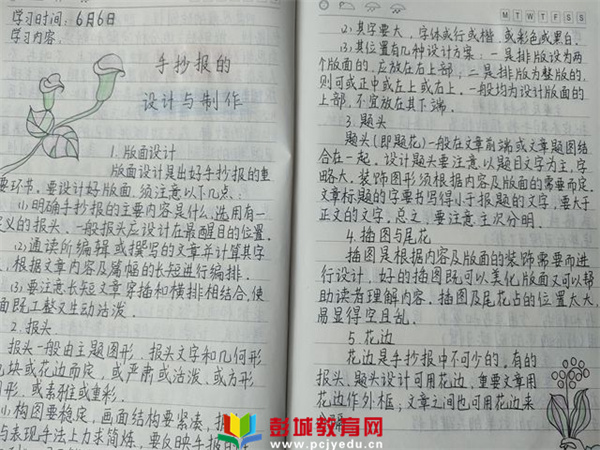 学习时间:6月6日
学习内容:
手抄报的
设计与制作
1.版面设计
版面设计是出好手抄报的重
要环书。要设计好版面,须注意以下几点:
(1)明确手抄报的主要内容是什么,选用有一
定义的报头。一般报头应设计在最醒目的位置。
(2)通读所编辑或撰写的文章并计算其字
,根据文章内容及篇幅的长短进行编排。
(3)要注意长短文章穿插和横排相结合,使
面既工整又生动活泼。
2.报头
报头一般由主题图形、报头文字和几何形
块或花边而定,或严肃或活泼、或方形
形、或素雅或重彩。
(1)构图要稳定,画面结构要紧凑,报
与表现手法上力求简炼,要反映手报
M T W T F S S
(2)其字要大,字体或行或楷,或彩色或黑白.
(3)其位置有几种设计方案:一是排版设为两
个版面的,应放在右上部;二是排版为整版的,
则可或正中或左上或右上。一般均为设计版面的
上部,不宜放在其下端.
3.题头
题头(即题花)一般在文章前端或文章题图结
合在一起。设计题头要注意以题目文字为主,字
略大。装饰图形须根据内容及版面的需要而定。
文章标题的字要书写得小于报题的文字,要大于
正文的文字。总之,要注意主次分明.
4.插图与尾花
插图是根据内容及版面的装饰需要而进
行设计,好的插图既可以美化版面又可以帮
助读者理解内容。插图及尾花占的位置太大,
易显得空且乱.
5.花边
花边是手抄报中不可少的,有的
报头、题头设计可用花边,重要文章用
花边作外框;文章之间也可用花边来
彭城教育网
www.pcjyedu.cn